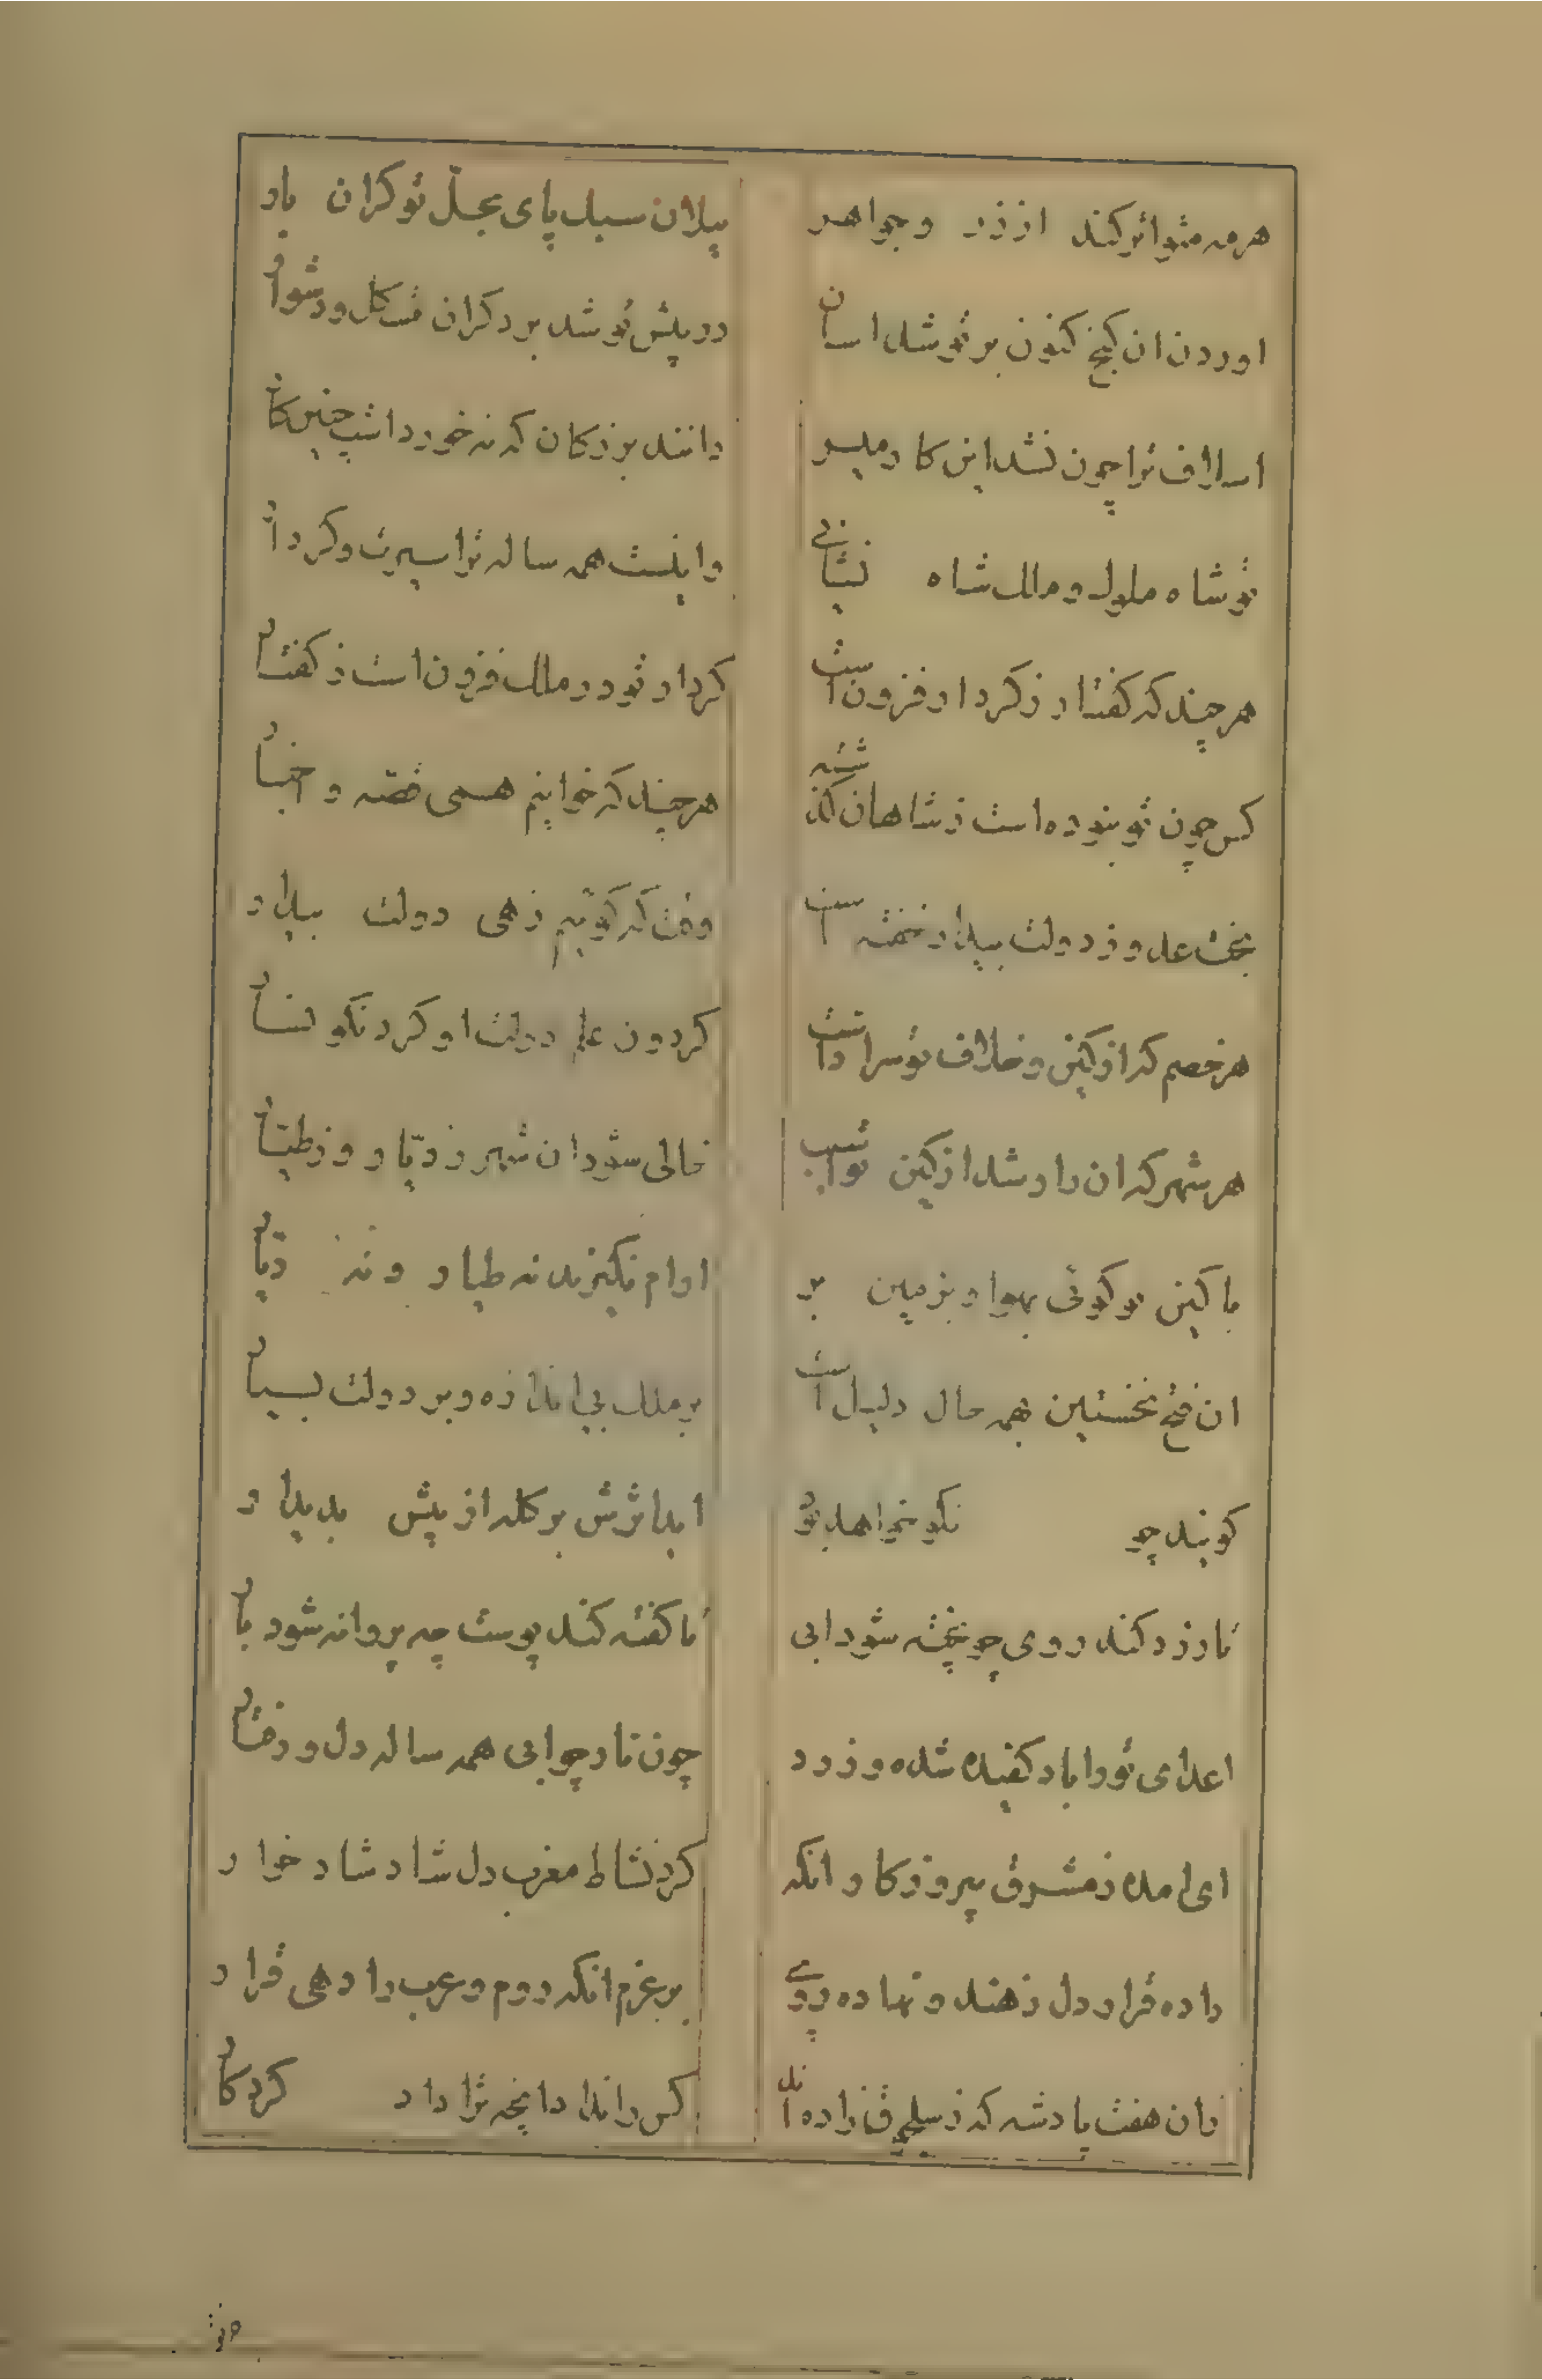 هرمه متواتر کند از زر و جواهر
پیلان سبک پای بحمل تو کران بار
اوردن ان کنج کنون بر تو شد اسان
در پیش تو شد بر دکران مشکل و دشوار
اسلاف ترا چون نشد این کار میسر
دانند بزرکان که نه خوردست چنین کار
تو شاه ملوک و ملک شاه نشانی
واینست همه ساله ترا سیرت و کردار
هر چند که کفتار ز کردار فزون است
کردار تو در ملک فزون است ز کفتار
کس چون تو بنوده است ز شاهان کذشته
هر چند که خوانیم همی قصه و اخبار
بخت عدو ز دولت بیدار خفته است
وقت که کوئیم زهی دولت بیدار
هر خصم که از کین و خلاف تو سر داشت
کردون علم دولت او کرد نکونسار
هر شهر که ان دار شد از کین تو اشب
خالی شود ان شهر ز دیار و ز طیار
با کین تو کوئی بهوا و بزمین بر
ارام نکیرند نه طیار و نه دیار
ان فتح نخستین بهمه حال دلیل است
بر ملک بی اندازه و بر دولت بسیار
کویند چو نکو خواهد بود
اید اثرش بر کله از پیش بدیدار
نار زرد کند روی چو پخته شود ابی
تا کفته کند پوست چه پروانه شود نار
اعدای تو را باد کفیده شده و زرد
چون نار چو ابی همه ساله دل و رخسار
ای امده ز مشرق پیروز کار وانکه
کرد نشاط مغرب دل شاد شاد خوار
داده قرار دل ز هند و نهاده روی
بر عزم انکه روم و عرب را دهی قرار
زان هفت پادشه که ز سلجوق زاده اند
کس را نداد انچه ترا داد کردکار